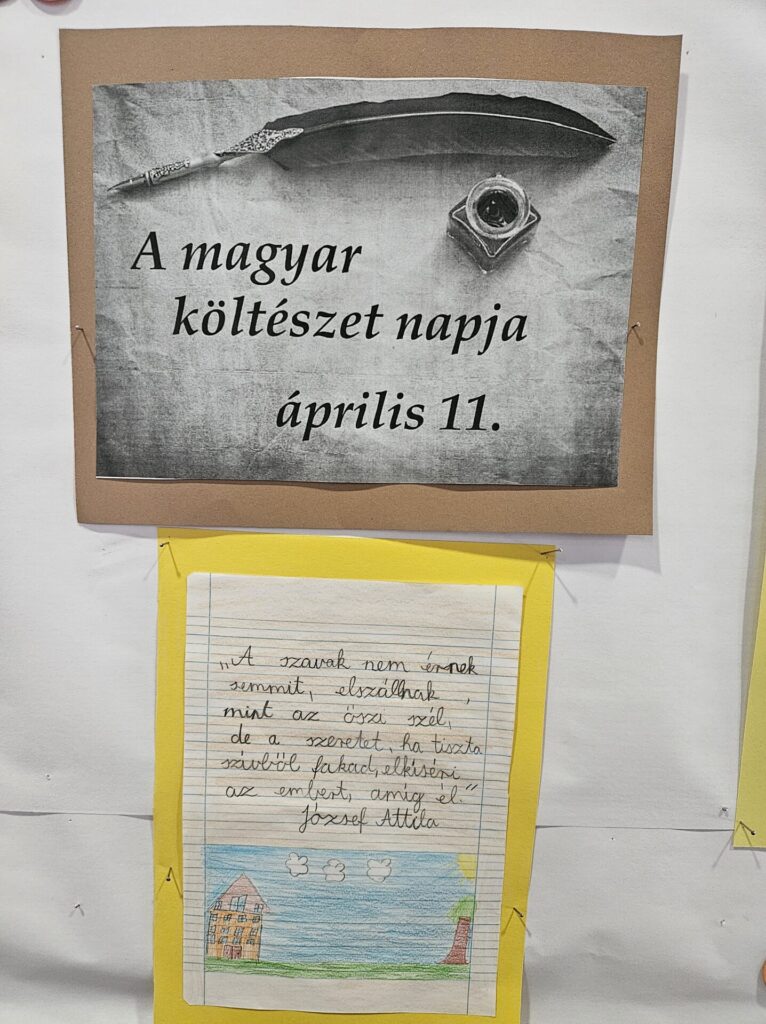 A magyar
költészet napja
április 11.
„A szavak nem érnek
semmit, elszállnak,
mint az őszi szél,
de a szeretet, ha tiszta
szívből fakad, elkíséri
az embert, amíg él."
József Attila